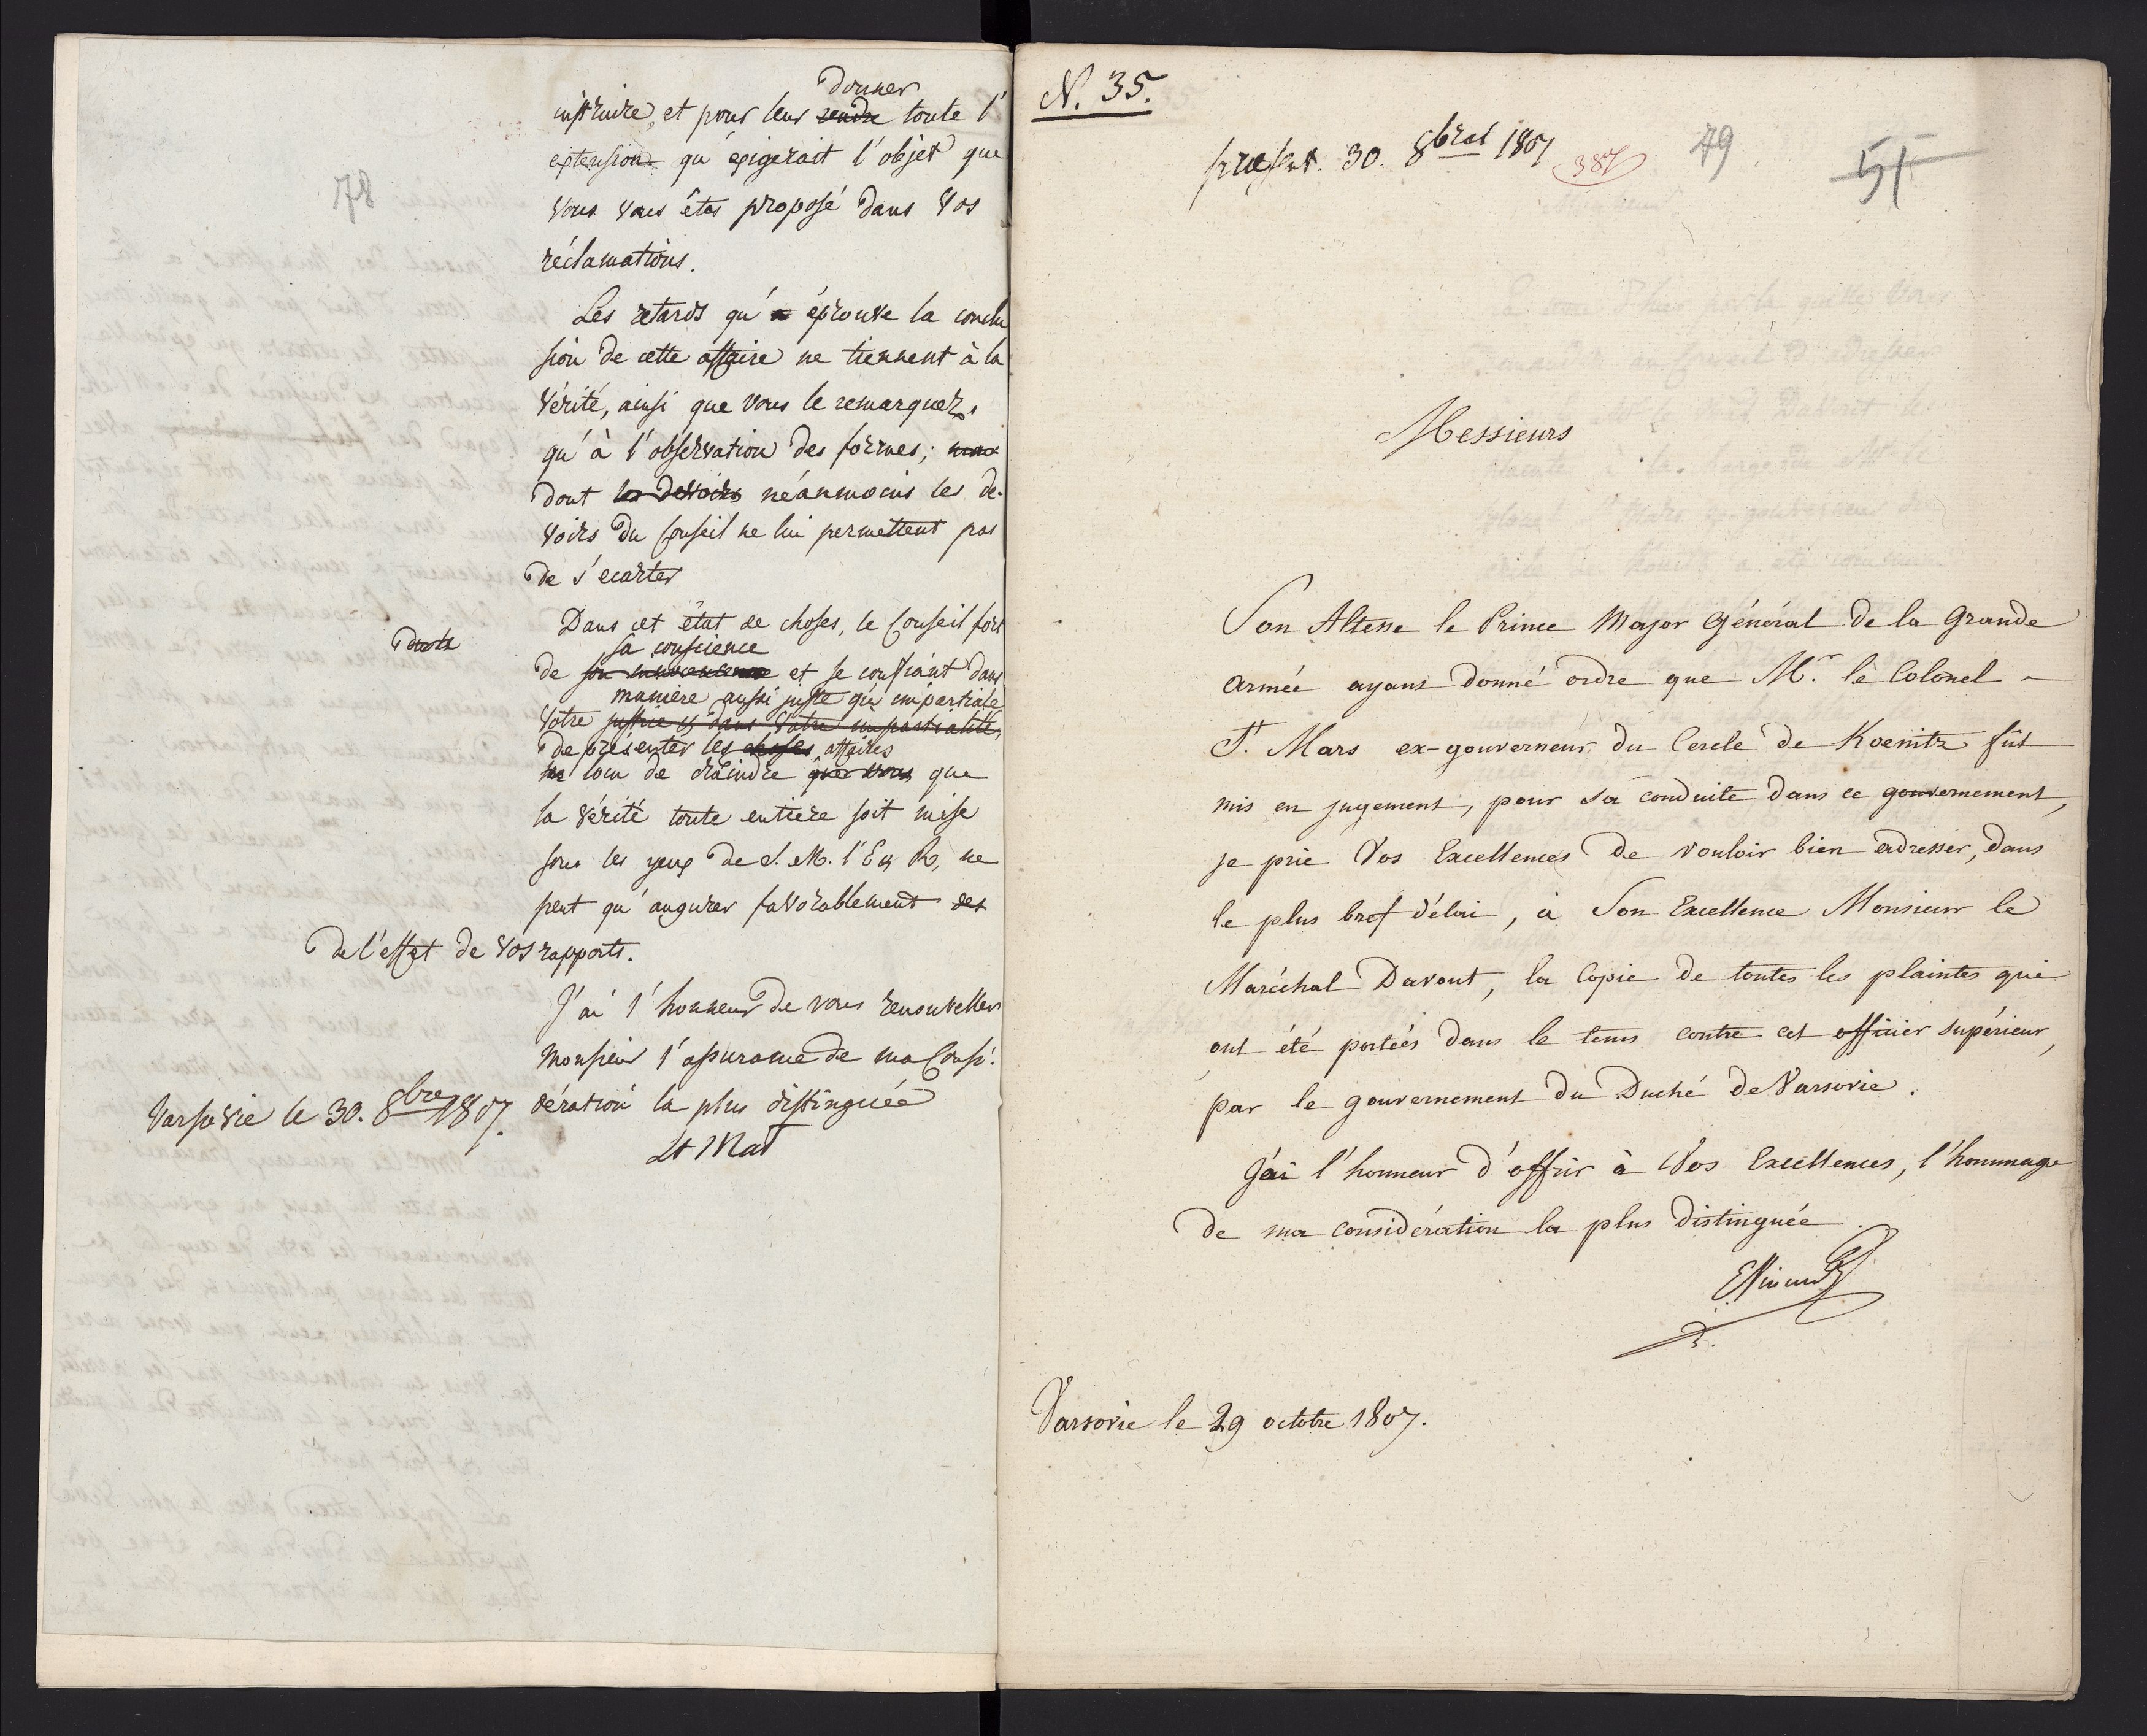 78
donner
instruire, et pour leur rendre toute l'
extension qu'exigerait l'objet que
vous vous êtes proposé dans vos
réclamations.
Les retards qu'a éprouve la conclu
sion de cette affaire ne tiennent à la
vérité, ainsi que vous le remarquez,
qu'à l'observation des formes;
dont les devoirs néanmoins les de-
voirs du Conseil ne lui permettent pas
de s'ecarter
Dans cet état de choses, le Conseil fort
sa conscience
de son et se confiant dans
manière aussi juste qu'impartiale
votre justice et dans votre impartialité,
de présenter les choses affaires
ne loin de craindre que vous que
la vérité toute entiere soit mise
sous les yeux de S. M. l'E et R, ne
peut qu'augurer favorablement des
de l'effet de vos rapports.
J'ai l'honneur de vous renouveller
Monsieur l'assurance de ma Consi-
dération la plus distinguée
Varsovie le 30. 8bre 1807.
St Mał
N. 35.
præsent. 30. 8bras 1807
387
79
51
Messieurs
Son Altesse le Prince Major Général de la Grande
armée ayant donné ordre que Mr. le Colonel
St. Mars ex-gouverneur du Cercle de Koenitz fût
mis en jugement, pour sa conduite dans ce gouvernement,
je prie Vos Excellences de vouloir bien adresser, dans
le plus bref délai, à Son Excellence Monsieur le
Maréchal Davout, la Copie de toutes les plaintes qui
ont été portées dans le tems contre cet officier supérieur,
par le gouvernement du Duché de Varsovie.
J'ai l'honneur d'offrir à Vos Excellences, l'hommage
de ma considération la plus distinguée.
EVincent
Varsovie le 29 octobre 1807.